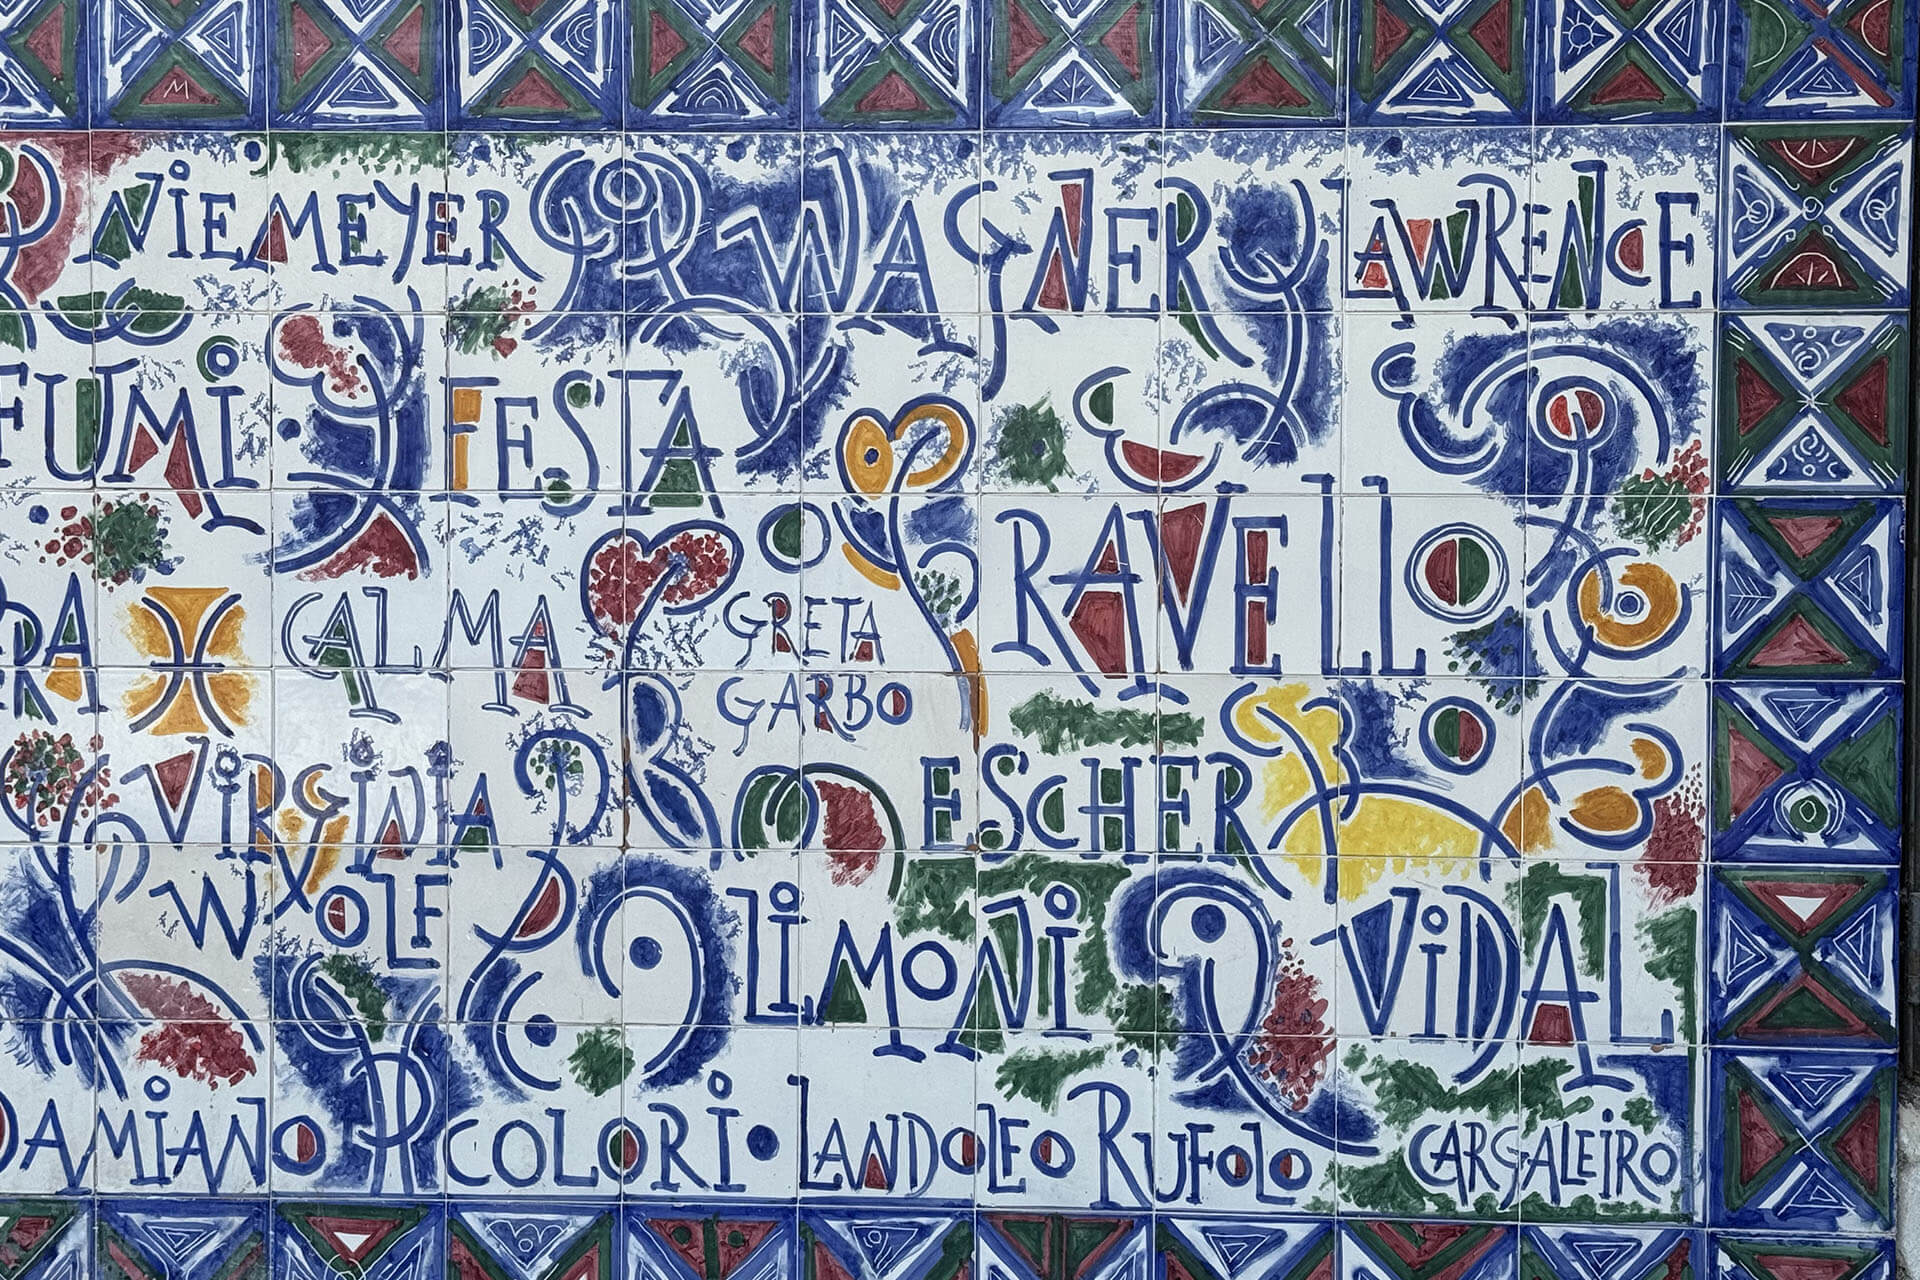 NiEMEYER WAGNER LAWRENCE
FUMi FESTA
RAVELLO
CALMA GRETA
GARBO
ViRGiNiA ESCHER
WOLF LiMONi ViDAL
DAMiANO COLORi • LANDOLFO RUFOLO CARGALEiRO